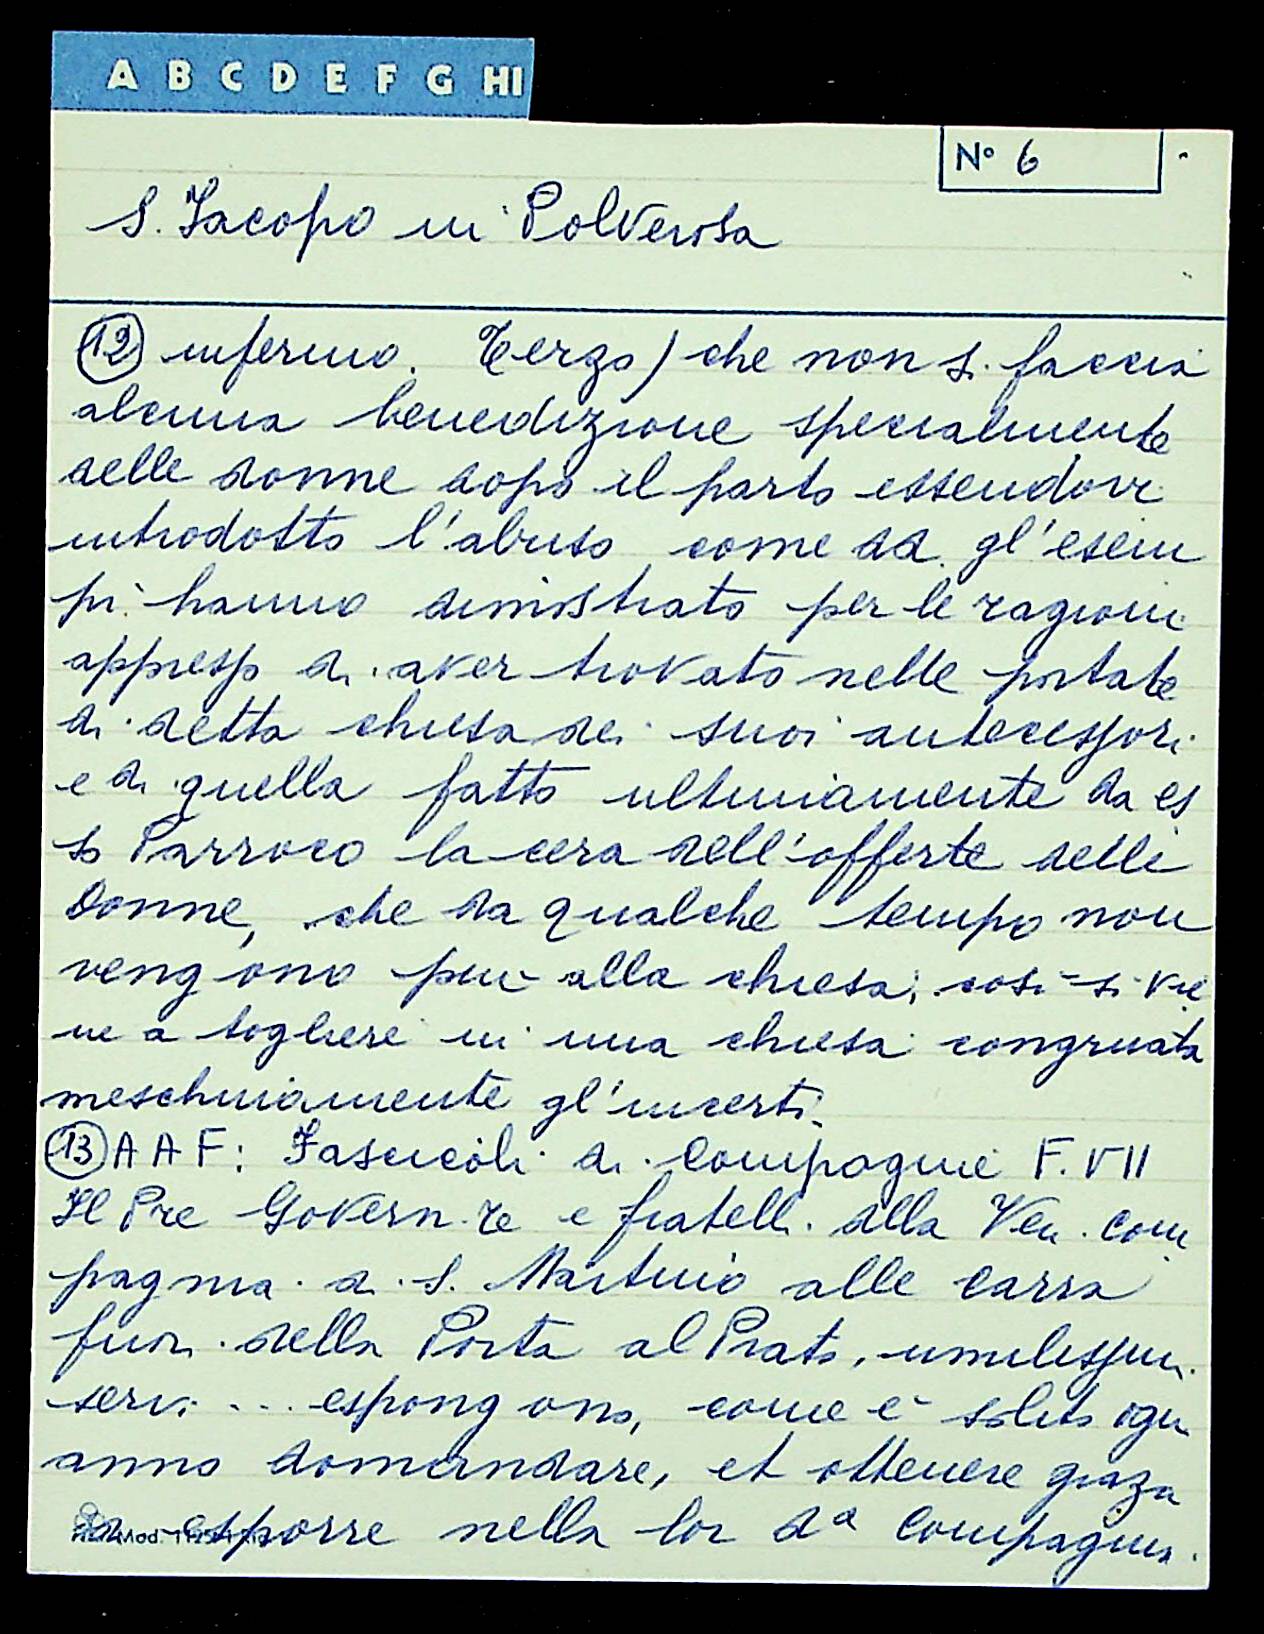 A B C D E F G HI
Nº 6
S. Jacopo in Polverosa
(12) infermo. Terzo) che non si faccia
alcuna benedizione specialmente
delle donne dopo il parto essendovi
introdotto l'abuso come da gl'esem
pi hanno dimostrato per le ragioni
appresso di aver trovato nelle portate
di detta chiesa dei suoi antecessori
e di quella fatto ultimamente da es
so Parroco la cera dell'offerte delle
Donne, che da qualche tempo non
vengono più alla chiesa; così si vie
ne a togliere in una chiesa congruata
meschinamente gl'incerti.
(13) A A F: Fascicoli di Compagnie F. VII
Il Pre Govern.re e fratelli della Ven. Com
pagnia di S. Martino alle Carra
fuori della Porta al Prato, umilissimi
servi ... espongono, come è solito ogni
anno domandare, et ottenere graza
di esporre nella lor dª Compagnia